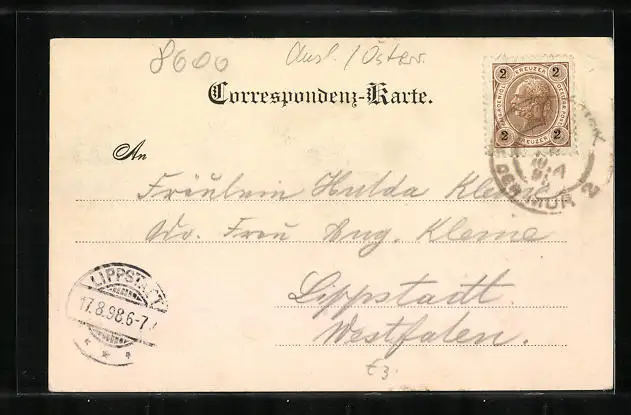 8600 Ausl. / Österr.
Correspondenz-Karte.
2 KREUZER 2
2 KREUZER 2
An
Fräulein Hulda Kleine
Adr. Frau Aug. Kleine
Lippstadt.
Westfalen.
LIPPSTADT
17.8.98.6-7
DER MUR
£3.